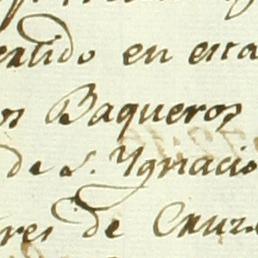 en esta
os Baqueros
de S. Ygnacio
res de Cruz